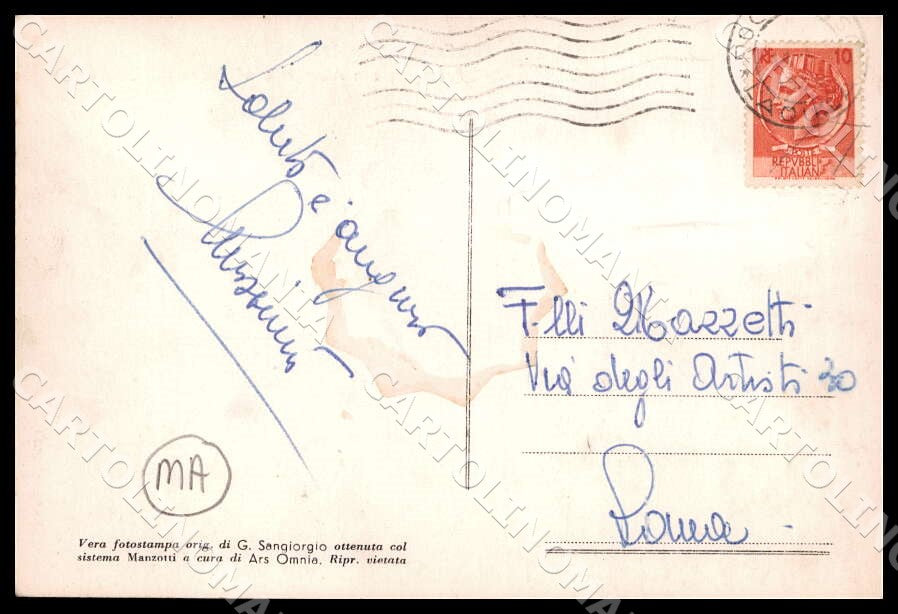 Saluti e auguri
Massimo
MA
Vera fotostampa orig. di G. Sangiorgio ottenuta col
sistema Manzotti a cura di Ars Omnia. Ripr. vietata
10
POSTE
REPVBBLICA
ITALIANA
F-lli Mazzetti
Via degli Artisti 30
Roma
CARTOLINOMANIA